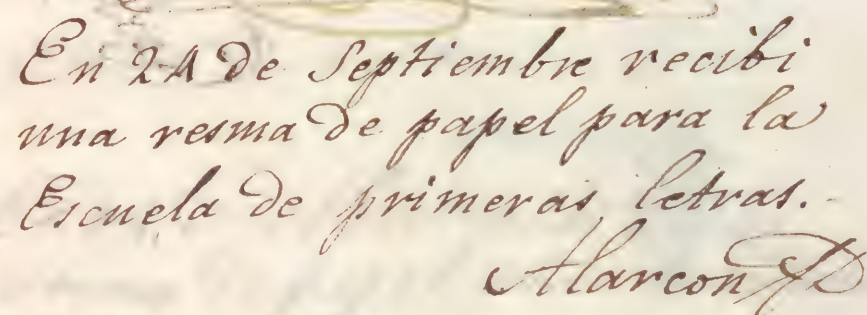 En 24 de Septiembre recibi
una resma de papel para la
Escuela de primeras letras.
Alarcon